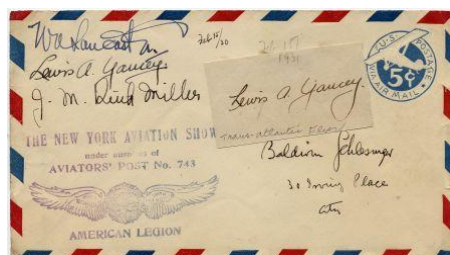 Wm Lancaster
Feb 15/30
Lewis A. Yancey
J. M. Bird Miller
Feb 15
1931
U.S. POSTAGE
VIA AIR MAIL
5¢
Lewis A. Yancey
Trans-atlantic Flyer
THE NEW YORK AVIATION SHOW
under auspices of
AVIATORS' POST No. 743
AMERICAN LEGION
Baldwin Schlesmer
30 Irving Place
City